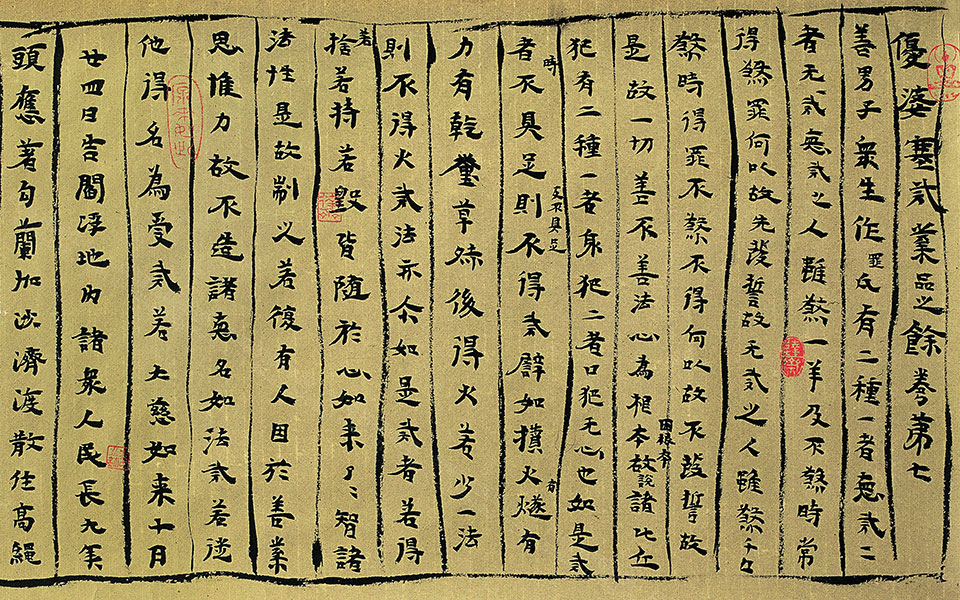 優婆塞戒業品之餘卷第七
善男子眾生作罪凡有二種一者惡戒二
者无戒惡戒之人雖煞一羊及不煞時常
得煞罪何以故先發誓故无戒之人雖煞千口
煞時得罪不煞不得何以故不發誓故
是故一切善不善法心為根本因根本故說諸比丘
犯有二種一者身犯二者口犯无心也如是戒
者時不具足則不得戒譬如攢火燧有
支不具足
力有乾糞草然後得火若少一法
則不得火戒法亦尒如是戒者若得
若捨若持若毀皆隨於心如來了了智諸
法性是故制义若復有人因於善業
思惟力故不造諸惡名如法戒若從
他得名為受戒若大慈如來十月
廿四日告閻浮地內諸眾人民長九
頭著勾蘭加沙濟渡散住高繩